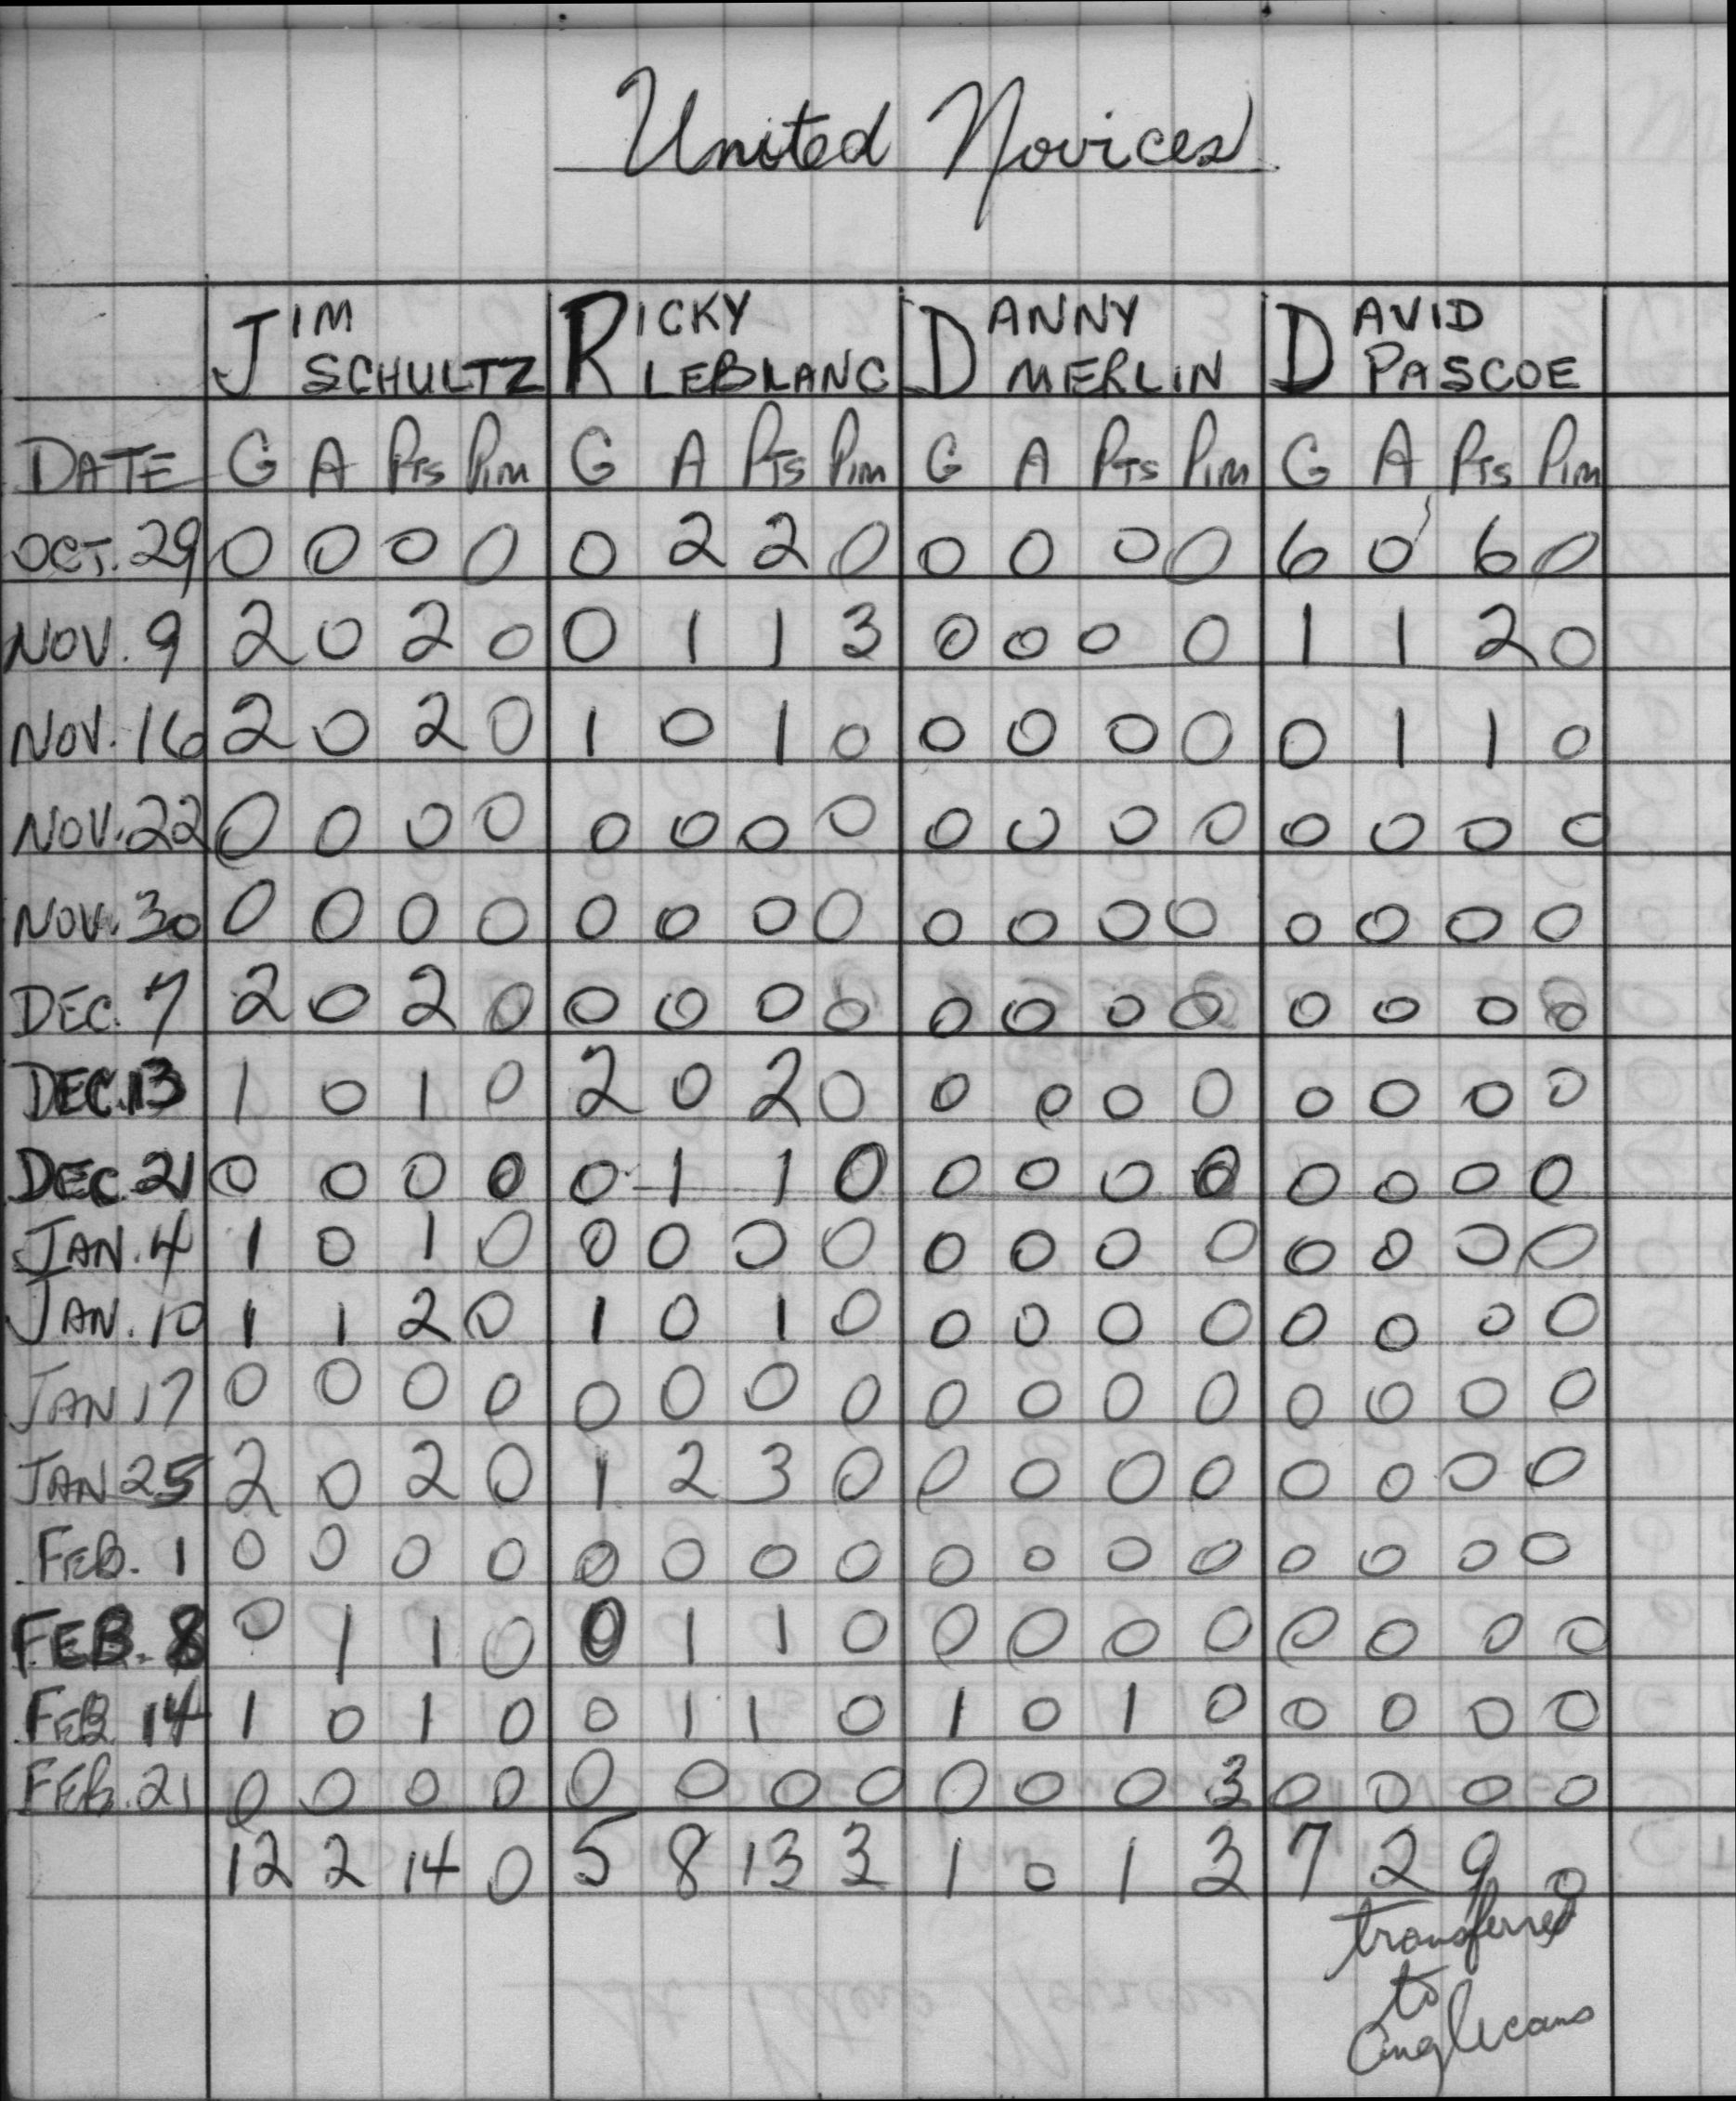 United Novices
JIM SCHULTZ RICKY LEBLANC DANNY MERLIN DAVID PASCOE
DATE G A Pts Pim G A Pts Pim G A Pts Pim G A Pts Pim
OCT. 29 0 0 0 0 0 2 2 0 0 0 0 0 6 0 6 0
NOV. 9 2 0 2 0 0 1 1 3 0 0 0 0 1 1 2 0
NOV. 16 2 0 2 0 1 0 1 0 0 0 0 0 0 1 1 0
NOV. 22 0 0 0 0 0 0 0 0 0 0 0 0 0 0 0 0
NOV. 30 0 0 0 0 0 0 0 0 0 0 0 0 0 0 0 0
DEC. 7 2 0 2 0 0 0 0 0 0 0 0 0 0 0 0 0
DEC. 13 1 0 1 0 2 0 2 0 0 0 0 0 0 0 0 0
DEC. 21 0 0 0 0 0 1 1 0 0 0 0 0 0 0 0 0
JAN. 4 1 0 1 0 0 0 0 0 0 0 0 0 0 0 0 0
JAN. 10 1 1 2 0 1 0 1 0 0 0 0 0 0 0 0 0
JAN 17 0 0 0 0 0 0 0 0 0 0 0 0 0 0 0 0
JAN 25 2 0 2 0 1 2 3 0 0 0 0 0 0 0 0 0
FEB. 1 0 0 0 0 0 0 0 0 0 0 0 0 0 0 0 0
FEB. 8 0 1 1 0 0 1 1 0 0 0 0 0 0 0 0 0
FEB 14 1 0 1 0 0 1 1 0 1 0 1 0 0 0 0 0
FEB. 21 0 0 0 0 0 0 0 0 0 0 0 3 0 0 0 0
12 2 14 0 5 8 13 3 1 0 1 3 7 2 9 0
transferred
to
Anglicans